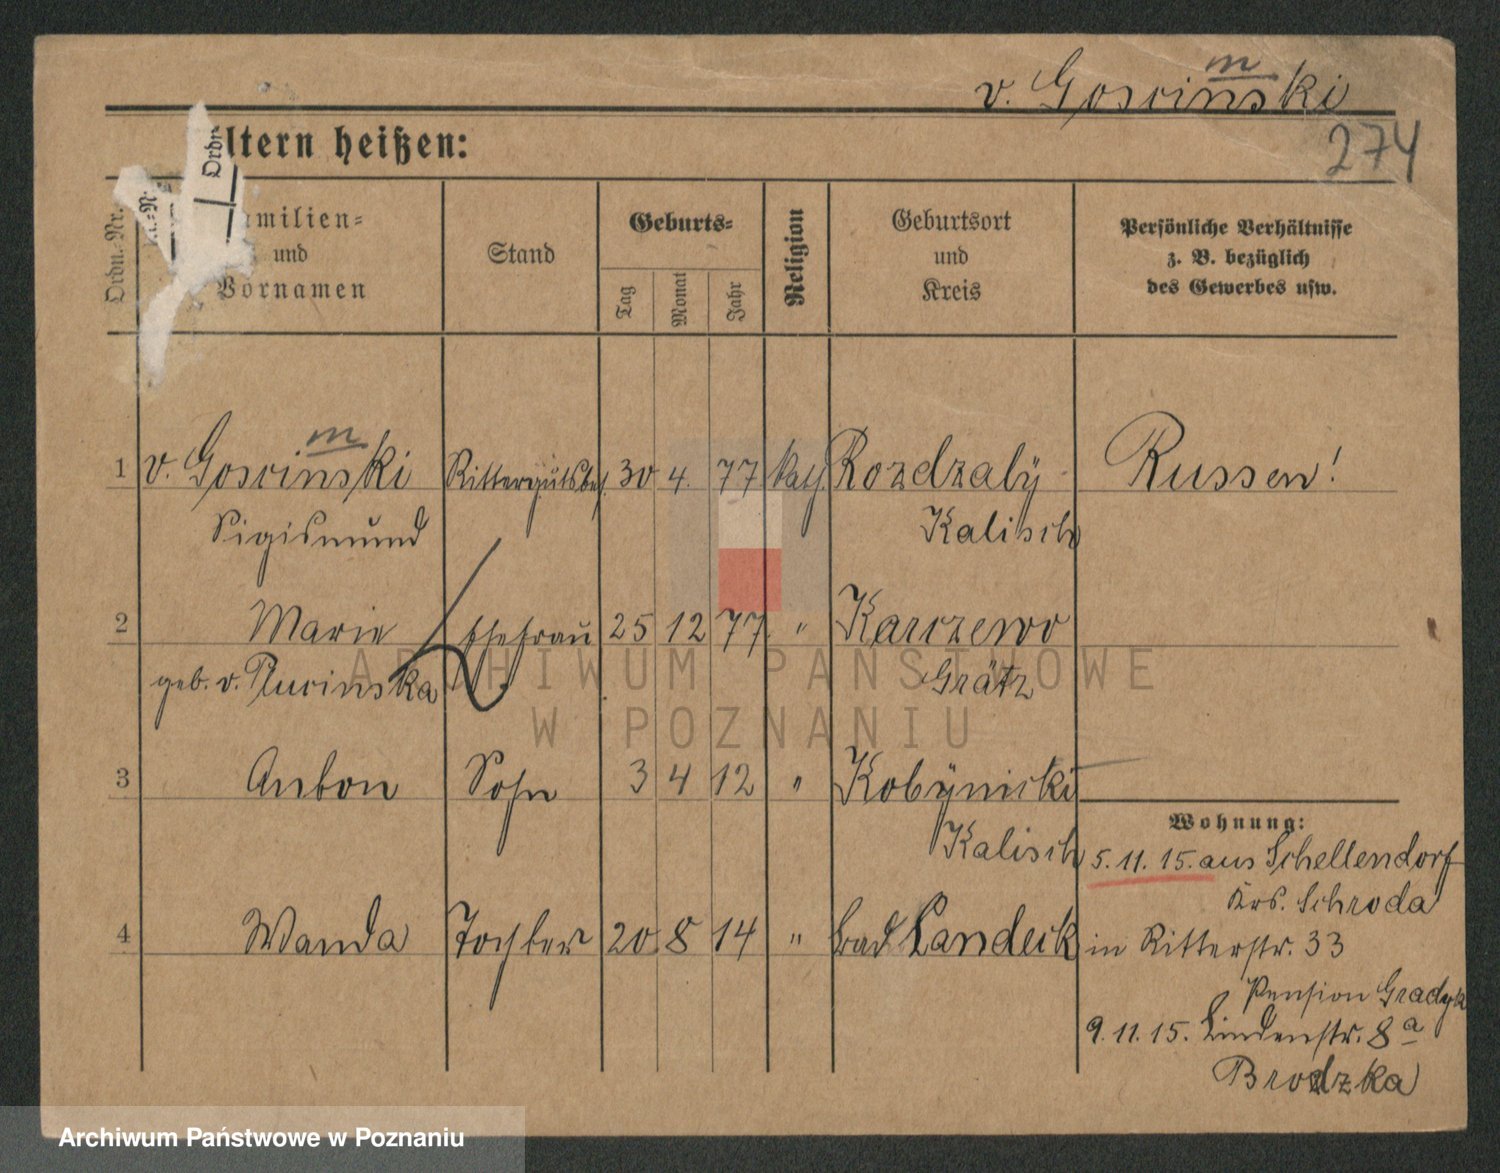 m
v. Goscinski
274
ltern heißen:
Ordn.-Nr.
Ordn
Familien-
und
Vornamen
Stand
Geburts-
Tag
Monat
Jahr
Religion
Geburtsort
und
Kreis
Persönliche Verhältnisse
z. B. bezüglich
des Gewerbes usw.
m
1 v. Goscinski Rittergutsbes. 30 4. 77 kath. Rozdzaly Russen!
Sigismund Kalisch
2 Marie Ehefrau 25 12 77 " Karczewo
geb. v. Plucinska Grätz
3 Anton Sohn 3 4 12 " Kobÿnicki
Kalisch
Wohnung:
5. 11. 15. aus Schellendorf
Krs. Schroda
4 Wanda Tochter 20 8 14 " Bad Landeck
in Ritterstr. 33
Pension Gradyk
9. 11. 15. Lindenstr. 8a
Brodzka
ARCHIWUM PAŃSTWOWE
W POZNANIU
Archiwum Państwowe w Poznaniu